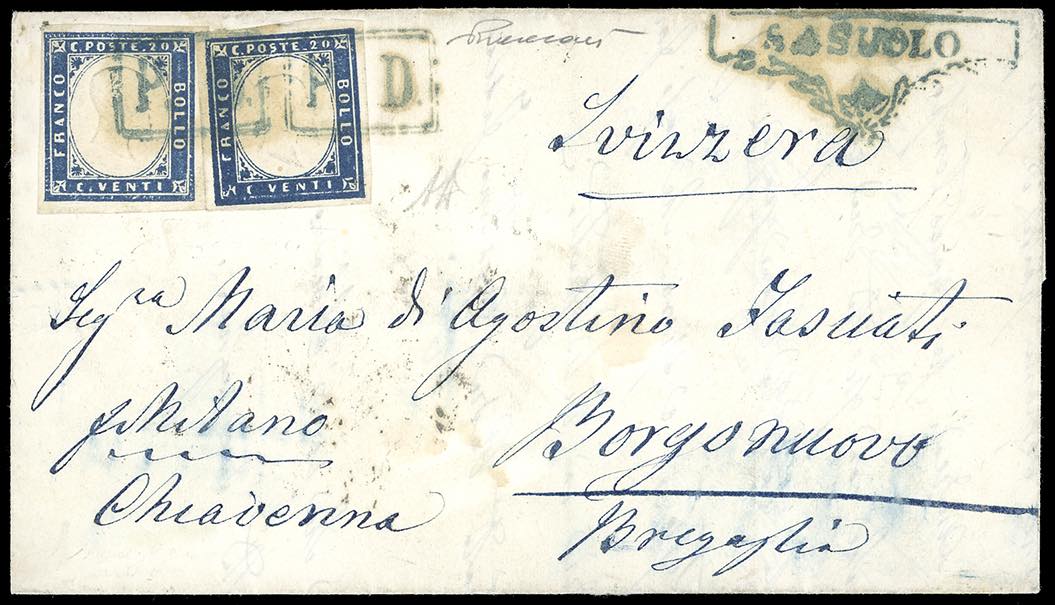 C. POSTE. 20
FRANCO
BOLLO
C. VENTI
C. POSTE. 20
FRANCO
BOLLO
C. VENTI
P. D.
SASUOLO
Svizzera
Segra Maria di Agostino Fasciati
p Milano
Borgonuovo
Chiavenna
Bregaglia